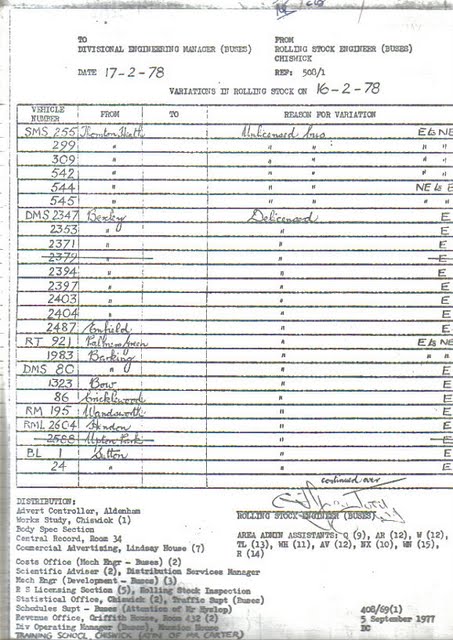 TO FROM
DIVISIONAL ENGINEERING MANAGER (BUSES) ROLLING STOCK ENGINEER (BUSES)
CHISWICK
DATE 17-2-78 REF: 508/1
VARIATIONS IN ROLLING STOCK ON 16-2-78
VEHICLE NUMBER FROM TO REASON FOR VARIATION
SMS 255 Thornton Heath Unlicensed Ins E to NE
299 " " " " "
309 " " " " "
542 " " " " "
544 " " " NE to E
545 " " " " "
DMS 2347 Bexley Delicensed E
2353 " " E
2371 " " E
2379 " " E
2394 " " E
2397 " " E
2403 " " E
2404 " " E
2487 Enfield " E
RT 921 Palmers Green " E to NE
1983 Barking " " "
DMS 80 " " E
1323 Bow " E
86 Cricklewood " E
RM 195 Wandsworth " E
RML 2604 Hendon " E
2588 Upton Park " E
BL 1 Sutton " E
24 " " E
continued over
DISTRIBUTION:
Advert Controller, Aldenham
Works Study, Chiswick (1)
Body Spec Section
Central Record, Room 34
Commercial Advertising, Lindsay House (7)
ROLLING STOCK ENGINEER (BUSES)
AREA ADMIN ASSISTANTS: Q (9), AR (12), W (12),
TL (13), WH (11), AV (12), NX (10), WN (15),
R (14)
Costs Office (Mech Engr - Buses) (2)
Scientific Adviser (2), Distribution Services Manager
Mech Engr (Development - Buses) (3)
R S Licensing Section (5), Rolling Stock Inspection
Statistical Office, Chiswick (2), Traffic Supt (Buses)
Schedules Supt - Buses (Attention of Mr Hyslop)
Revenue Office, Griffith House, Room 432 (2)
Div Operating Manager (Buses), House
TRAINING SCHOOL, CHISWICK (ATTN OF MR CARTER)
408/69(1)
5 September 1977
BO